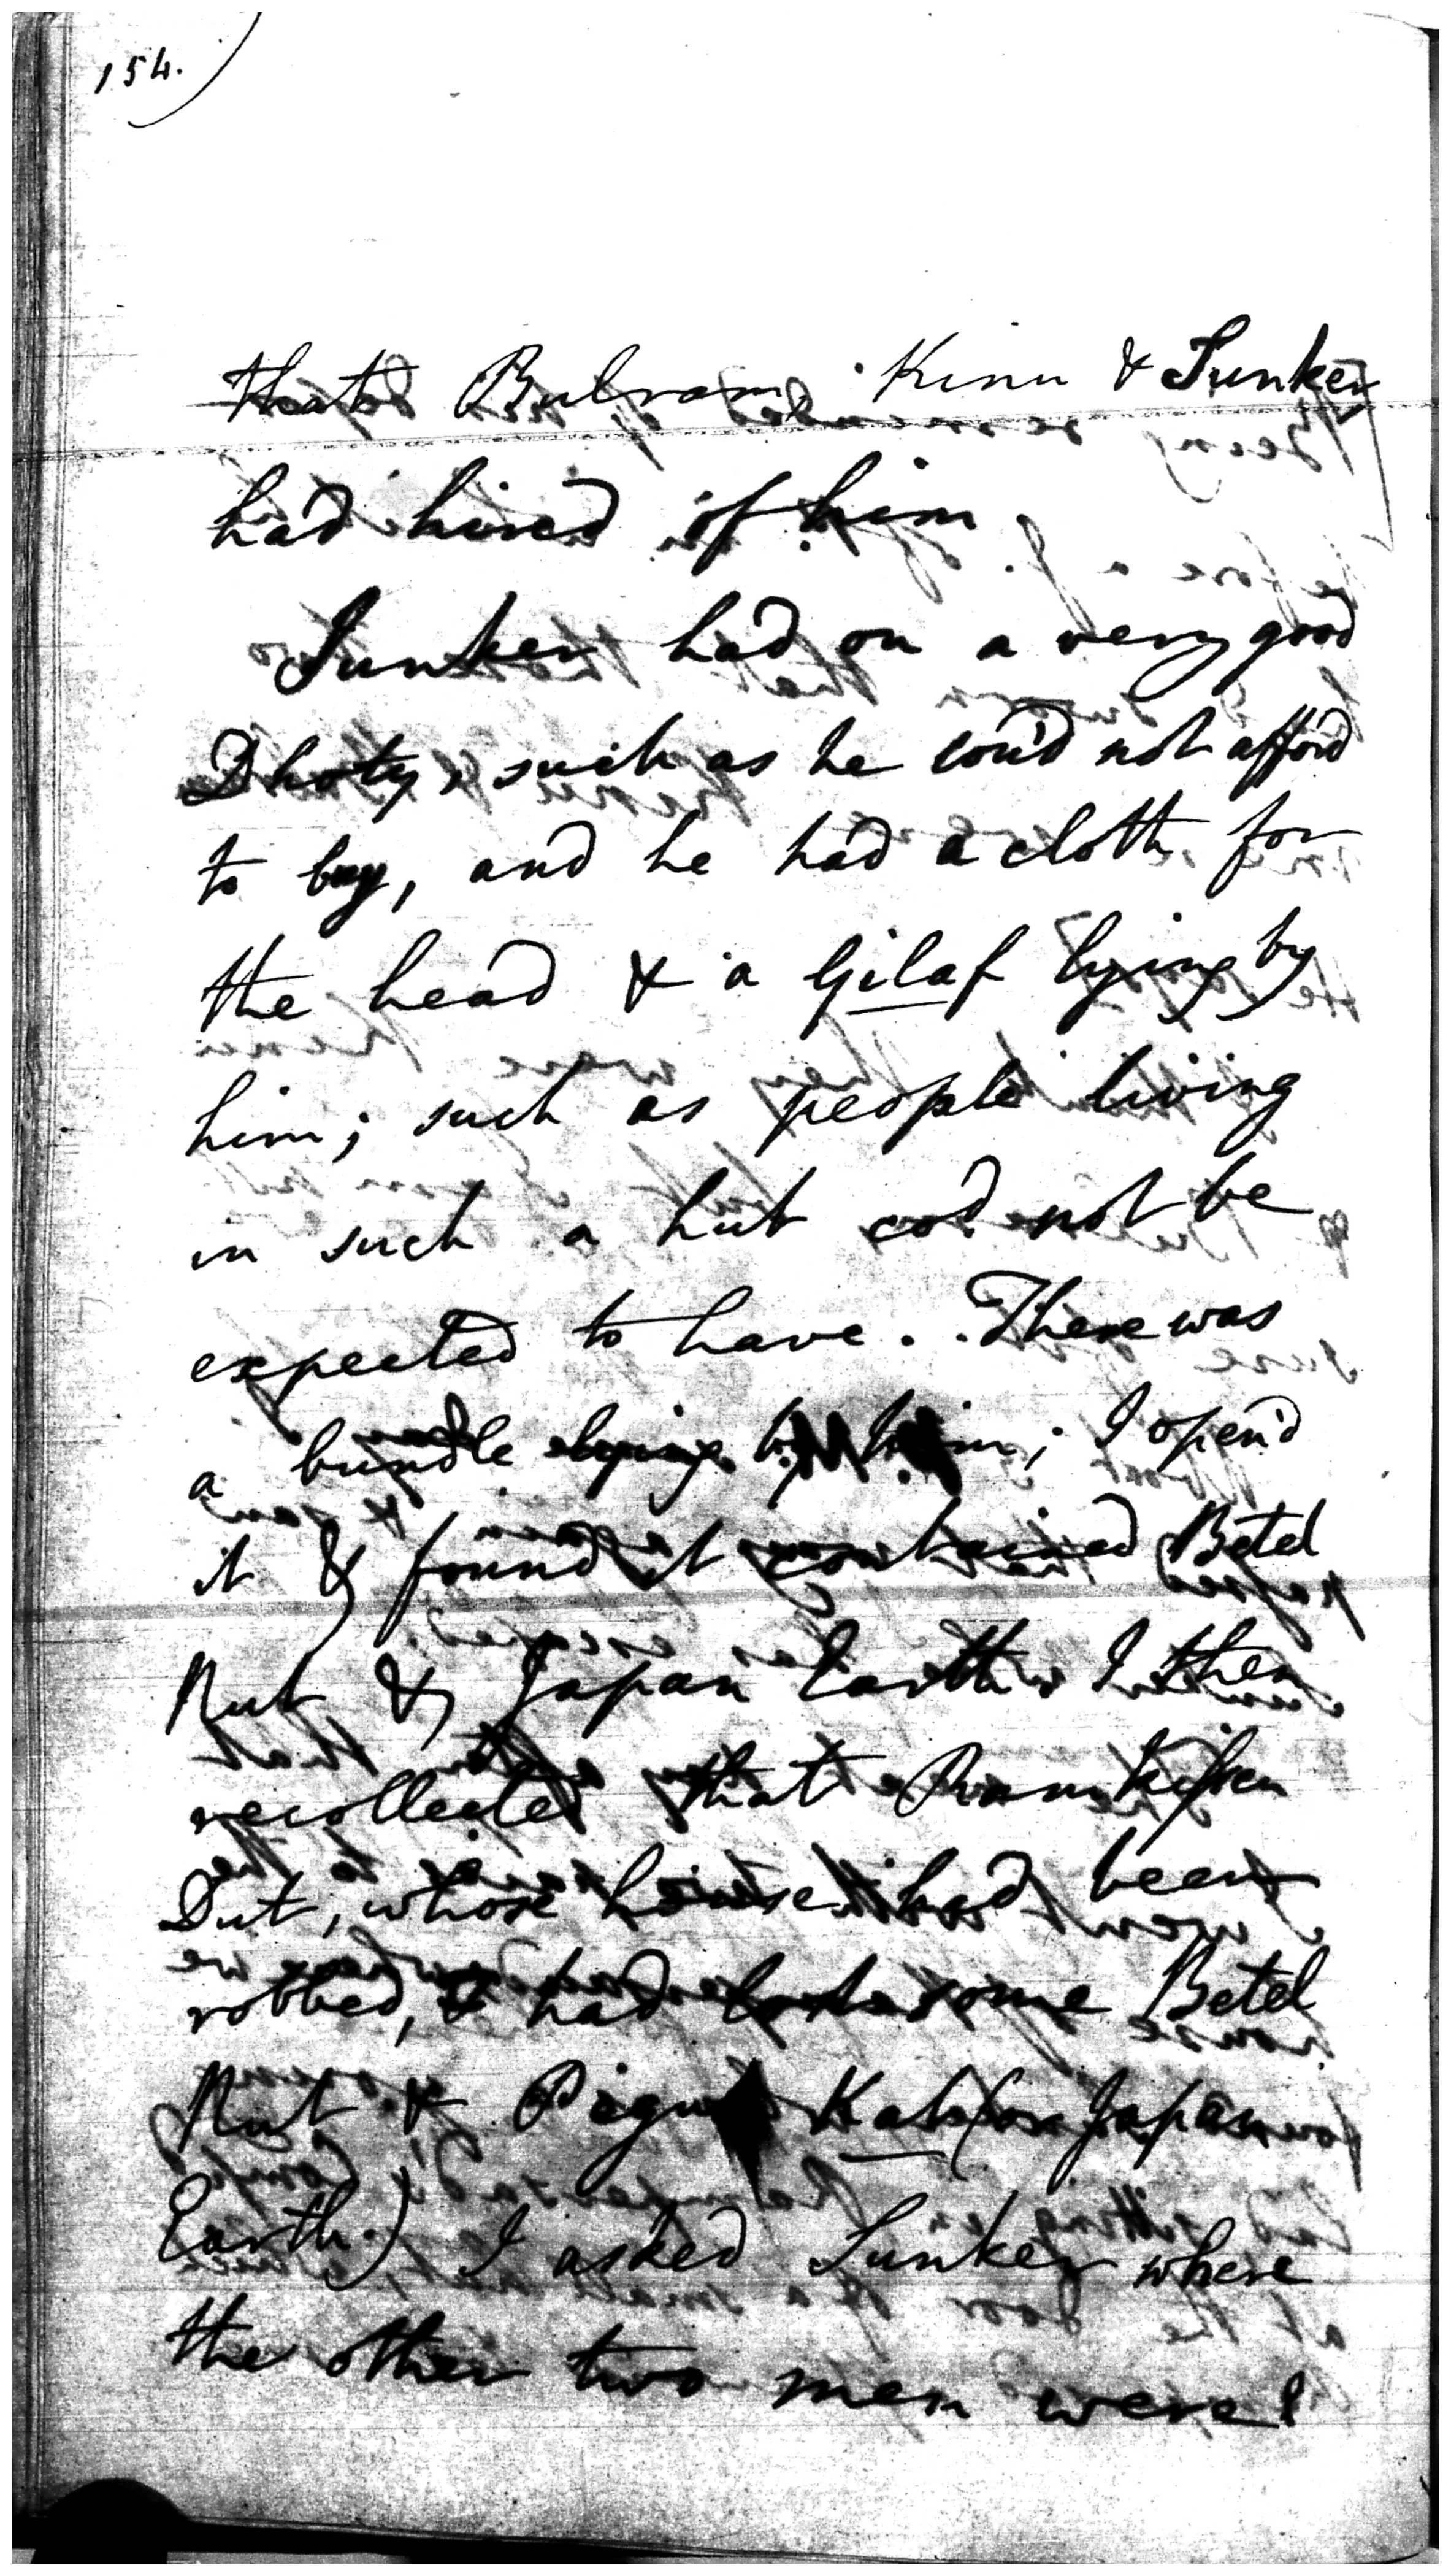 154.)
that Bulram, Kinu & Sunker
had hired of him.
Sunker had on a very good
Dhoty, such as he cou'd not afford
to buy, and he had a cloth for
the head & a Gilaf lying by
him; such as people living
in such a hut cod. not be
expected to have. There was
a bundle lying by him; I open'd
it & found it contained Betel
Nut & Japan Earth. I then
recollected that Ramkissen
Dut, whose house had been
robbed, had lost some Betel
Nut & Pegu Kat (or Japan
Earth.) I asked Sunker where
the other two men were?